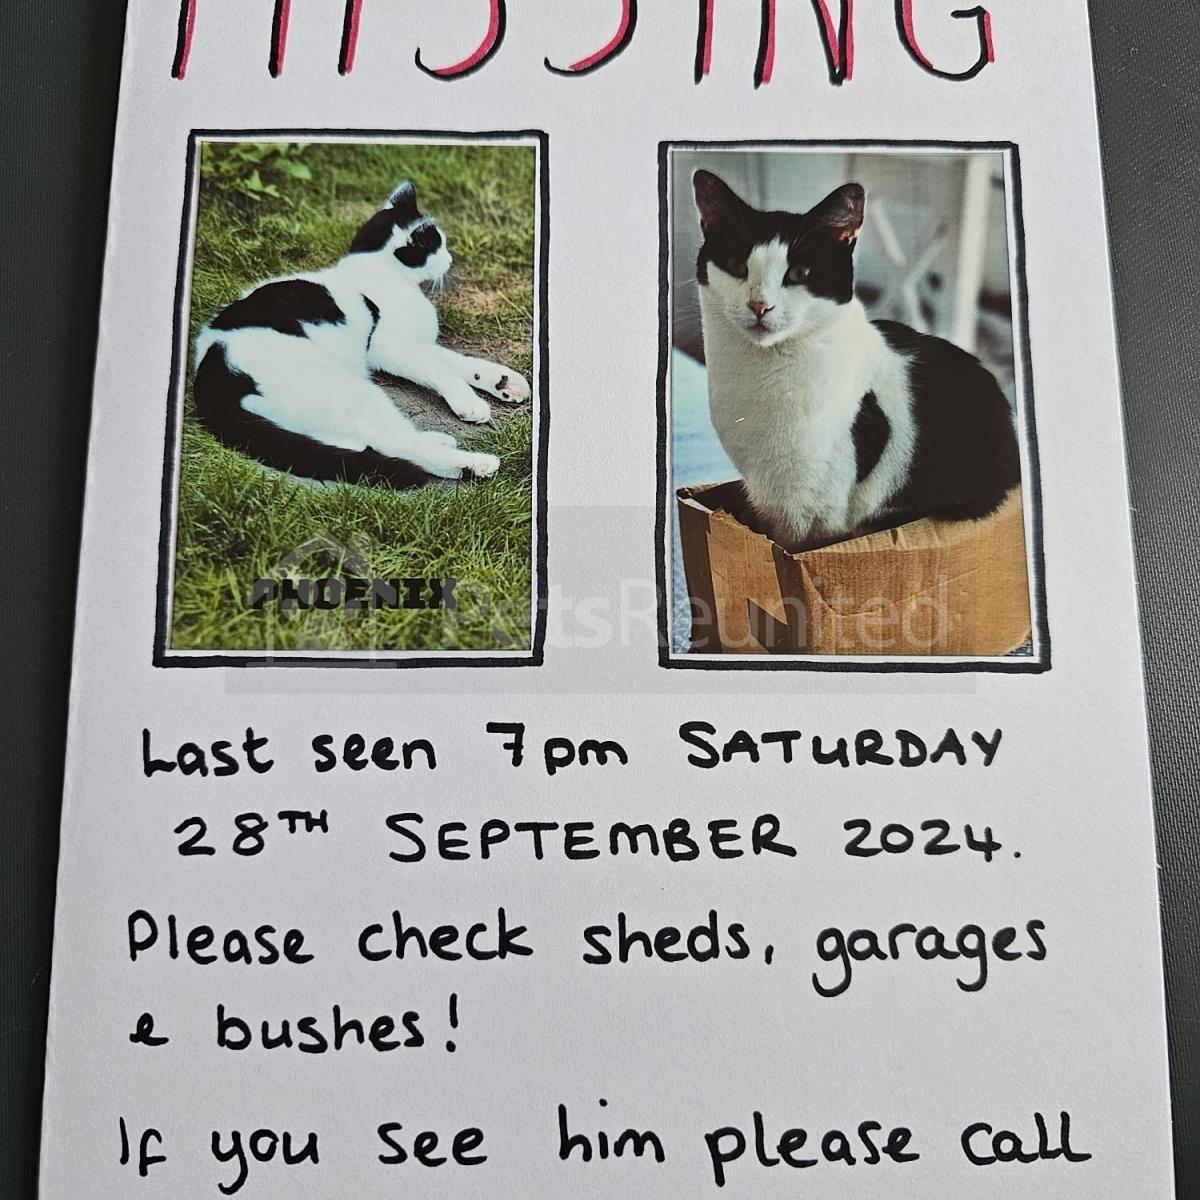 MISSING
PHOENIX
PetsReunited
Last seen 7pm SATURDAY
28TH SEPTEMBER 2024.
Please check sheds, garages
& bushes!
If you see him please call